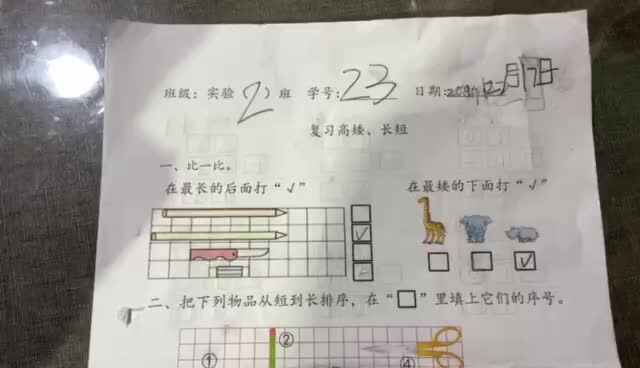 班级：实验 2 班 学号：23 日期：
复习高矮、长短
一、比一比。
在最长的后面打“√” 在最矮的下面打“√”
√
√
二、把下列物品从短到长排序，在“□”里填上它们的序号。
②
① ④